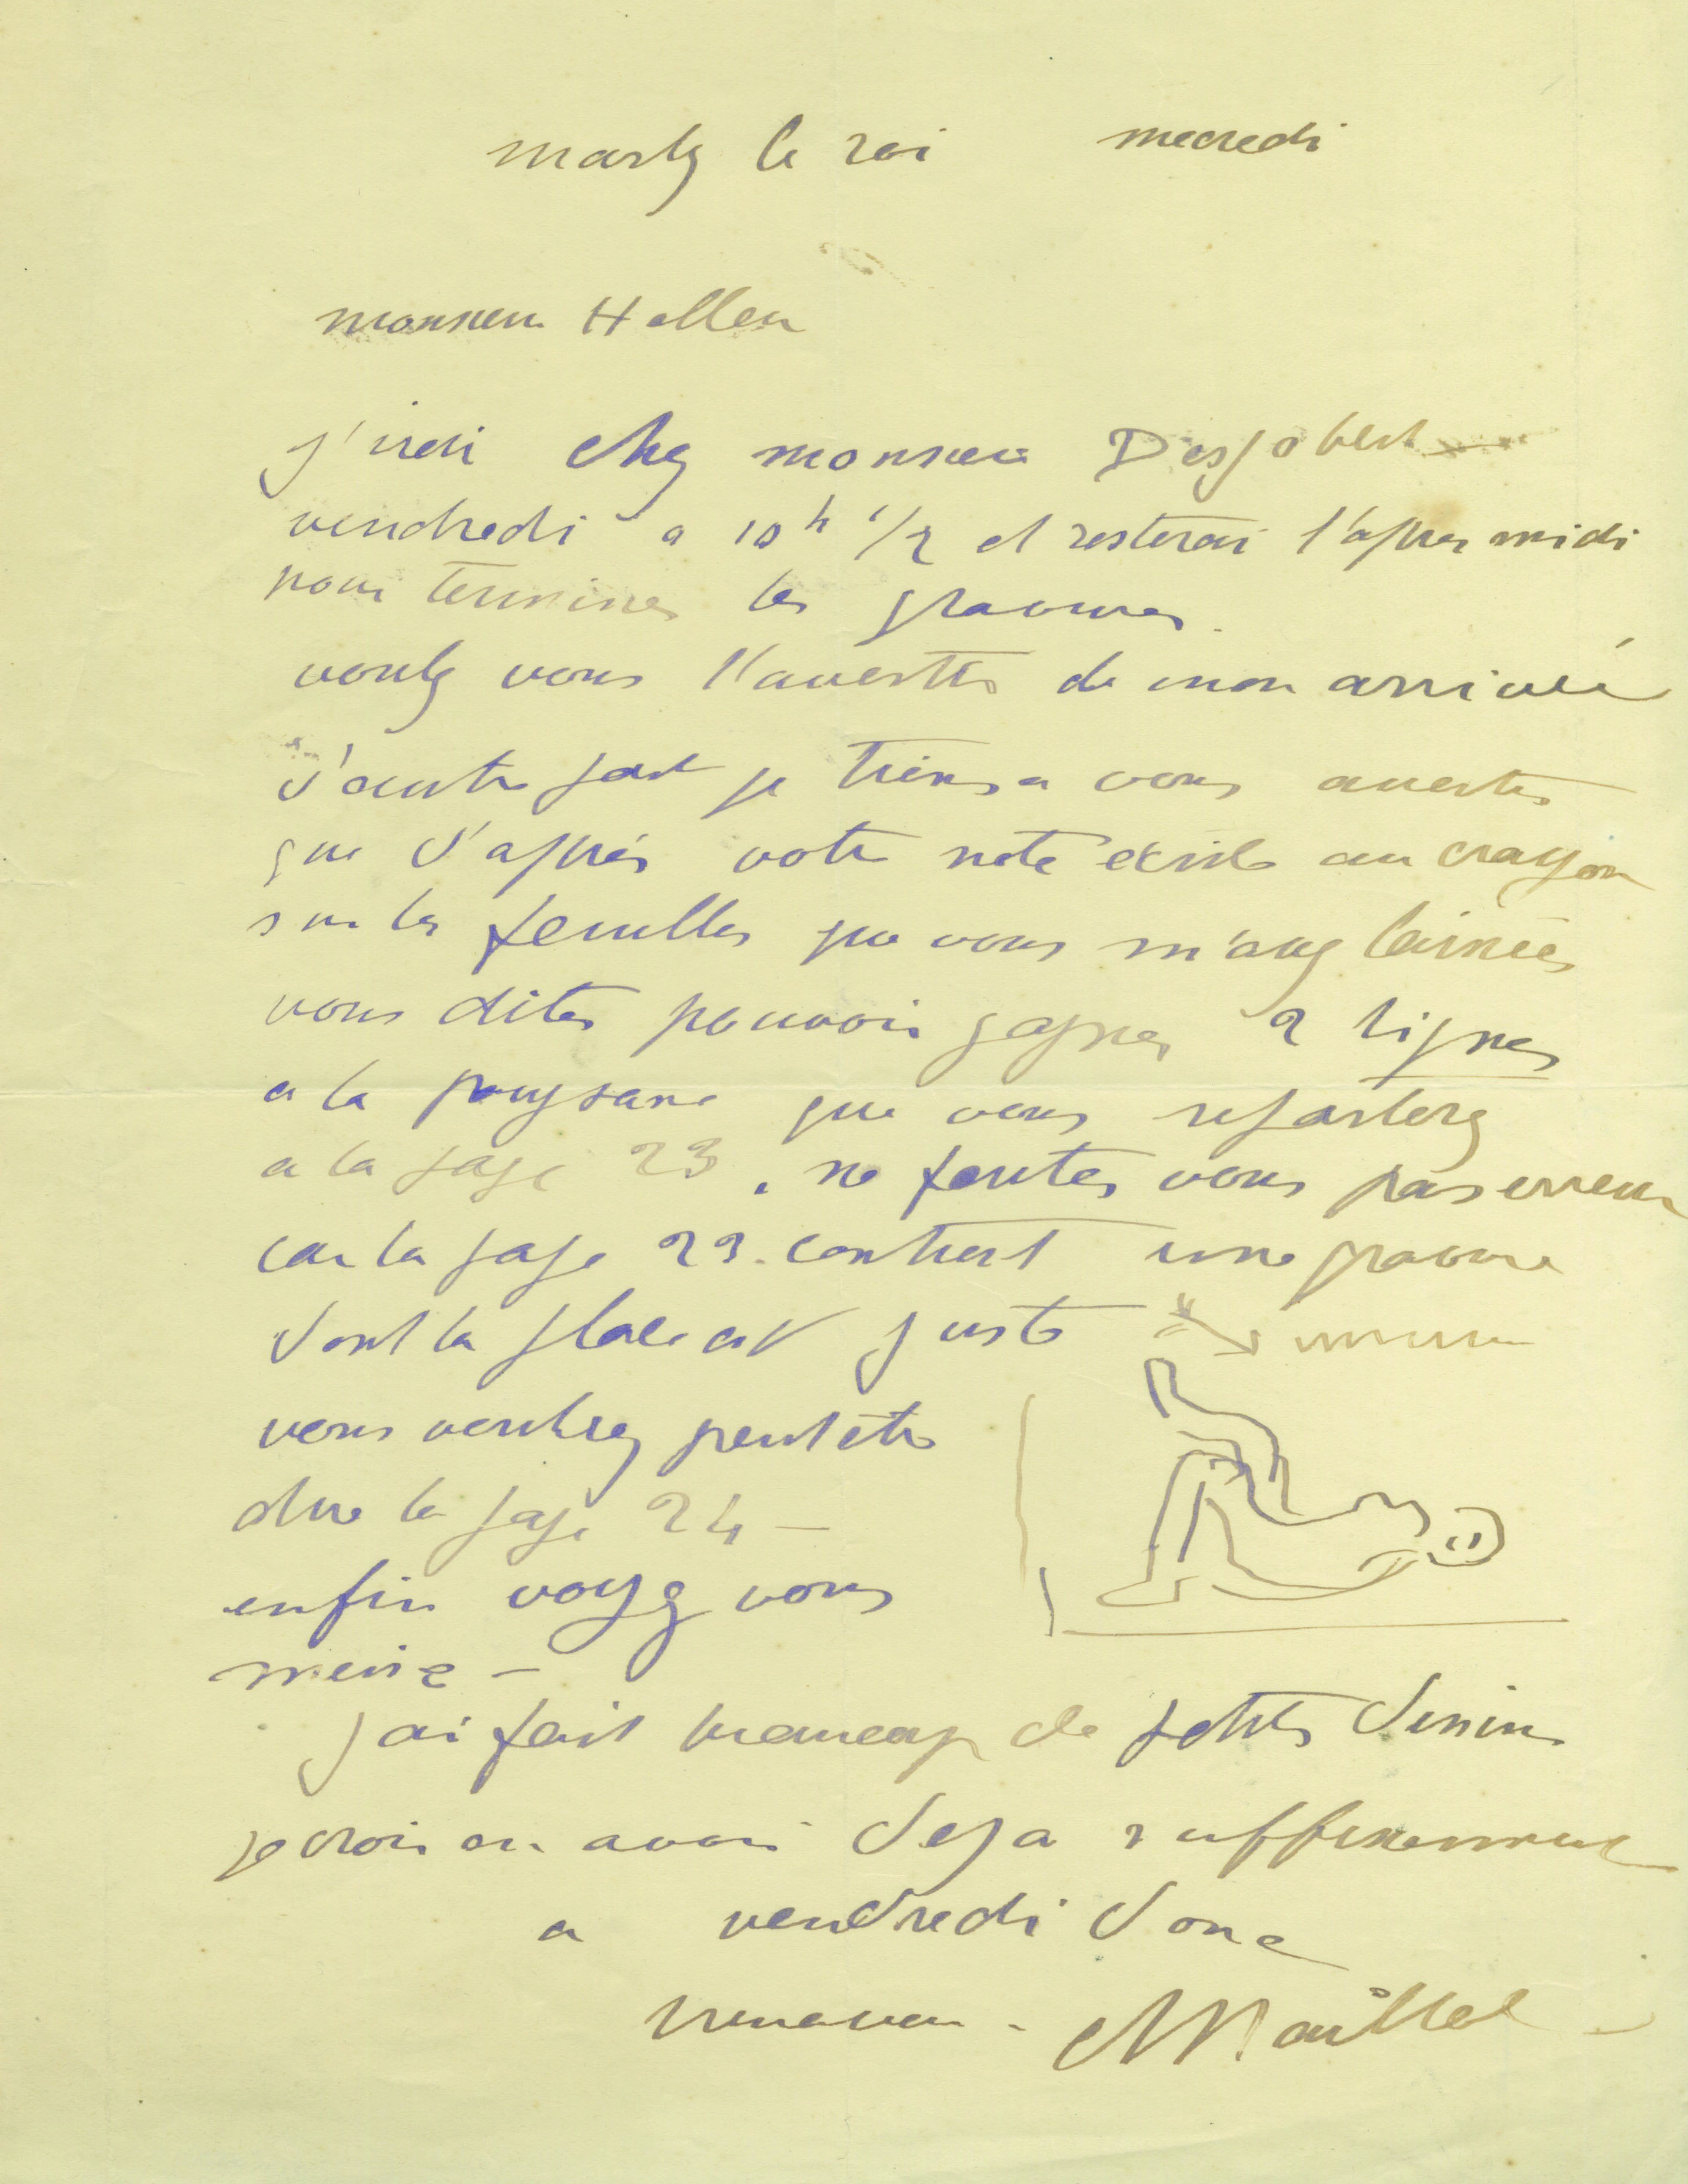 marly le roi mecredi
monsieur Hallen
j'irai chez monsieur Desjobert
vendredi a 10h 1/2 et resterai l'apres midi
pour terminer les gravures.
voulez vous l'avertir de mon arrivée
d'autre part je tiens a vous avertir
que d'après votre note ecrite au crayon
sur les feuilles que vous m'avez laissées
vous dites pouvoir gagner 2 lignes
a la paysane que vous reporterez
a la page 23. ne faites vous pas erreur
car la page 23. contient une gravure
dont la place est juste
vous voulez peut etre
dire la page 24 -
enfin voyez vous
meme -
j'ai fait beaucoup de petits dessins
je crois en avoir deja suffisamment
a vendredi donc
Maillol